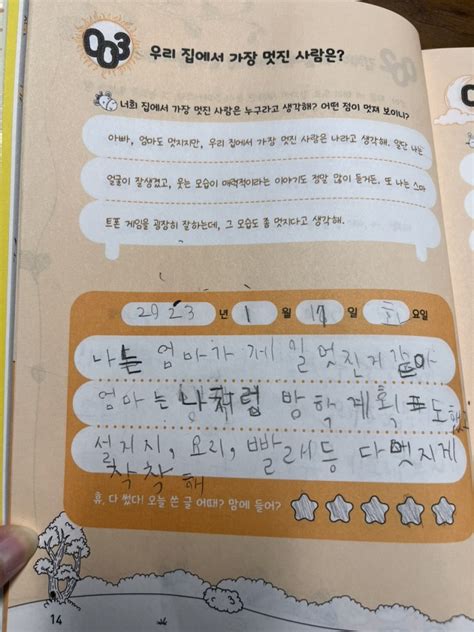 003 우리 집에서 가장 멋진 사람은?
너희 집에서 가장 멋진 사람은 누구라고 생각해? 어떤 점이 멋져 보이니?
아빠, 엄마도 멋지지만, 우리 집에서 가장 멋진 사람은 나라고 생각해. 일단 나는
얼굴이 잘생겼고, 웃는 모습이 매력적이라는 이야기도 정말 많이 듣거든. 또 나는 스마
트폰 게임을 굉장히 잘하는데, 그 모습도 좀 멋지다고 생각해.
2023 년 1 월 17 일 화 요일
나는 엄마가 제일 멋진거 같아
엄마는 나처럼 방학계획표도해
설거지, 요리, 빨래등 다멋지게
착착해
휴, 다 썼다! 오늘 쓴 글 어때? 맘에 들어?
14